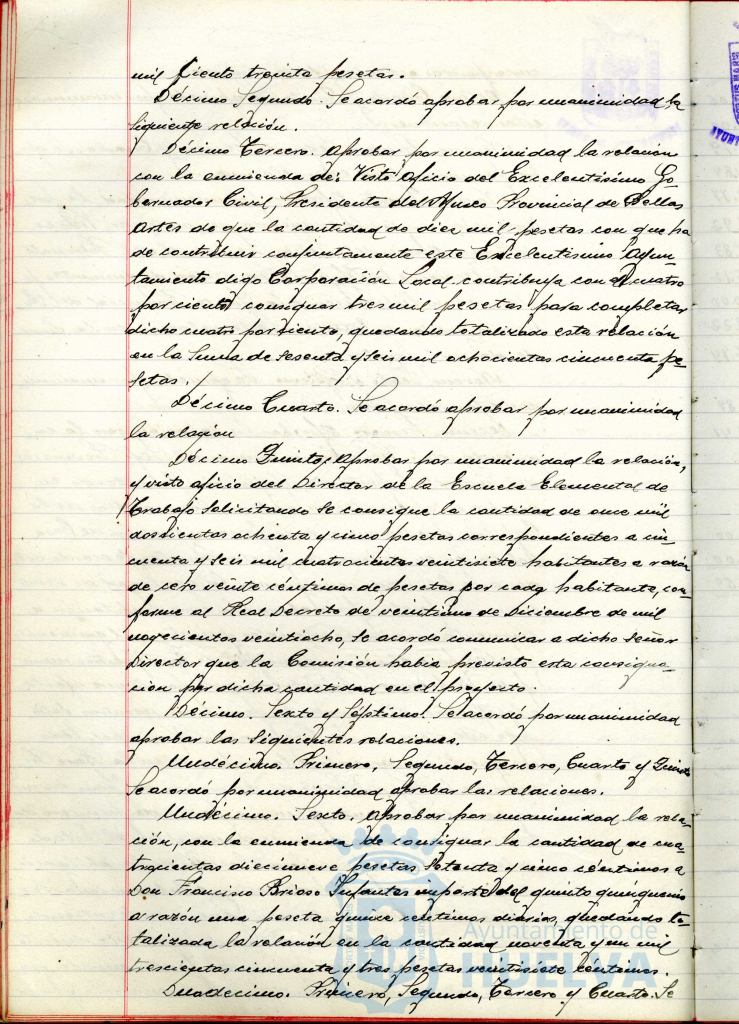 mil ciento treinta pesetas.
Décimo Segundo. Se acordó aprobar por unanimidad la
siguiente relación.
Décimo Tercero. Aprobar por unanimidad la relación
con la enmienda de: Visto oficio del Excelentísimo Go-
bernador Civil, Presidente del Museo Provincial de Bellas
Artes de que la cantidad de diez mil pesetas con que ha
de contribuir conjuntamente este Excelentísimo Ayun-
tamiento digo Corporación Local contribuya con el cuatro
por ciento consignar tres mil pesetas para completar
dicho cuatro por siento, quedando totalizado esta relación
en la suma de sesenta y seis mil ochocientas cincuenta pe-
setas.
Décimo Cuarto. Se acordó aprobar por unanimidad
la relación
Décimo Quinto. Aprobar por unanimidad la relación,
y visto oficio del Director de la Escuela Elemental de
Trabajo solicitando se consigne la cantidad de once mil
doscientas ochenta y cinco pesetas correspondientes a cin-
cuenta y seis mil cuatrocientos veintisiete habitantes a razón
de cero veinte céntimos de pesetas por cada habitante, con-
forme al Real Decreto de veintiuno de Diciembre de mil
novecientos veintiocho, se acordó comunicar a dicho Señor
Director que la Comisión había previsto esta consigna-
cion por dicha cantidad en el proyecto.
Décimo. Sexto y Séptimo. Se acordó por unanimidad
aprobar las siguientes relaciones.
Undécimo. Primero, Segundo, Tercero, Cuarto y Quinto
Se acordó por unanimidad aprobar las relaciones.
Undécimo. Sexto. Aprobar por unanimidad la rela-
ción, con la enmienda de consignar la cantidad de cua-
trocientas diecinueve pesetas setenta y cinco céntimos a
Don Francisco Brioso Infantes importe del quinto quinquenio
a razón una peseta quince céntimos diarios, quedando to-
talizada la relación en la cantidad noventa y un mil
trescientas cincuenta y tres pesetas veintisiete céntimos.
Duodecimo. Primero, Segundo, Tercero y Cuarto. Se
Ayuntamiento de
HUELVA